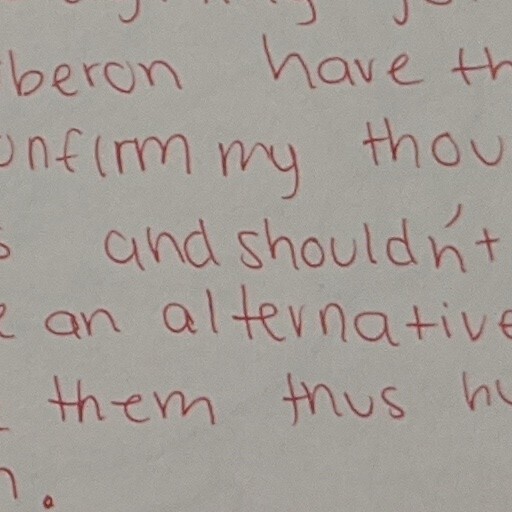 beron have th
onfirm my thou
s and shouldn't
e an alternative
them thus hu
n.